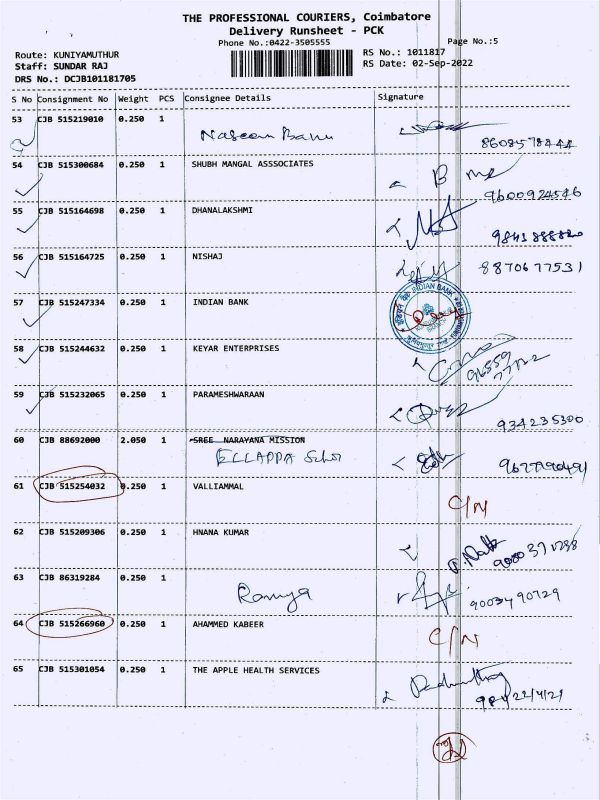 THE PROFESSIONAL COURIERS, Coimbatore
Delivery Runsheet - PCK
Phone No.:0422-3505555
Page No.:5
Route: KUNIYAMUTHUR
Staff: SUNDAR RAJ
DRS No.: DCJB101181705
RS No.: 1011817
RS Date: 02-Sep-2022
S No Consignment No Weight PCS Consignee Details Signature
53 CJB 515219010 0.250 1 Naseem Banu 8608578444
54 CJB 515300684 0.250 1 SHUBH MANGAL ASSSOCIATES 9600924546
55 CJB 515164698 0.250 1 DHANALAKSHMI
56 CJB 515164725 0.250 1 NISHAJ 8870677531
57 CJB 515247334 0.250 1 INDIAN BANK INDIAN BANK
58 CJB 515244632 0.250 1 KEYAR ENTERPRISES 96559
59 CJB 515232065 0.250 1 PARAMESHWARAAN 934235300
60 CJB 88692000 2.050 1 SREE NARAYANA MISSION
ELLAPPA
61 CJB 515254032 0.250 1 VALLIAMMAL C/N
62 CJB 515209306 0.250 1 HNANA KUMAR
63 CJB 86319284 0.250 1 Ramya 9003490729
64 CJB 515266960 0.250 1 AHAMMED KABEER C/N
65 CJB 515301054 0.250 1 THE APPLE HEALTH SERVICES